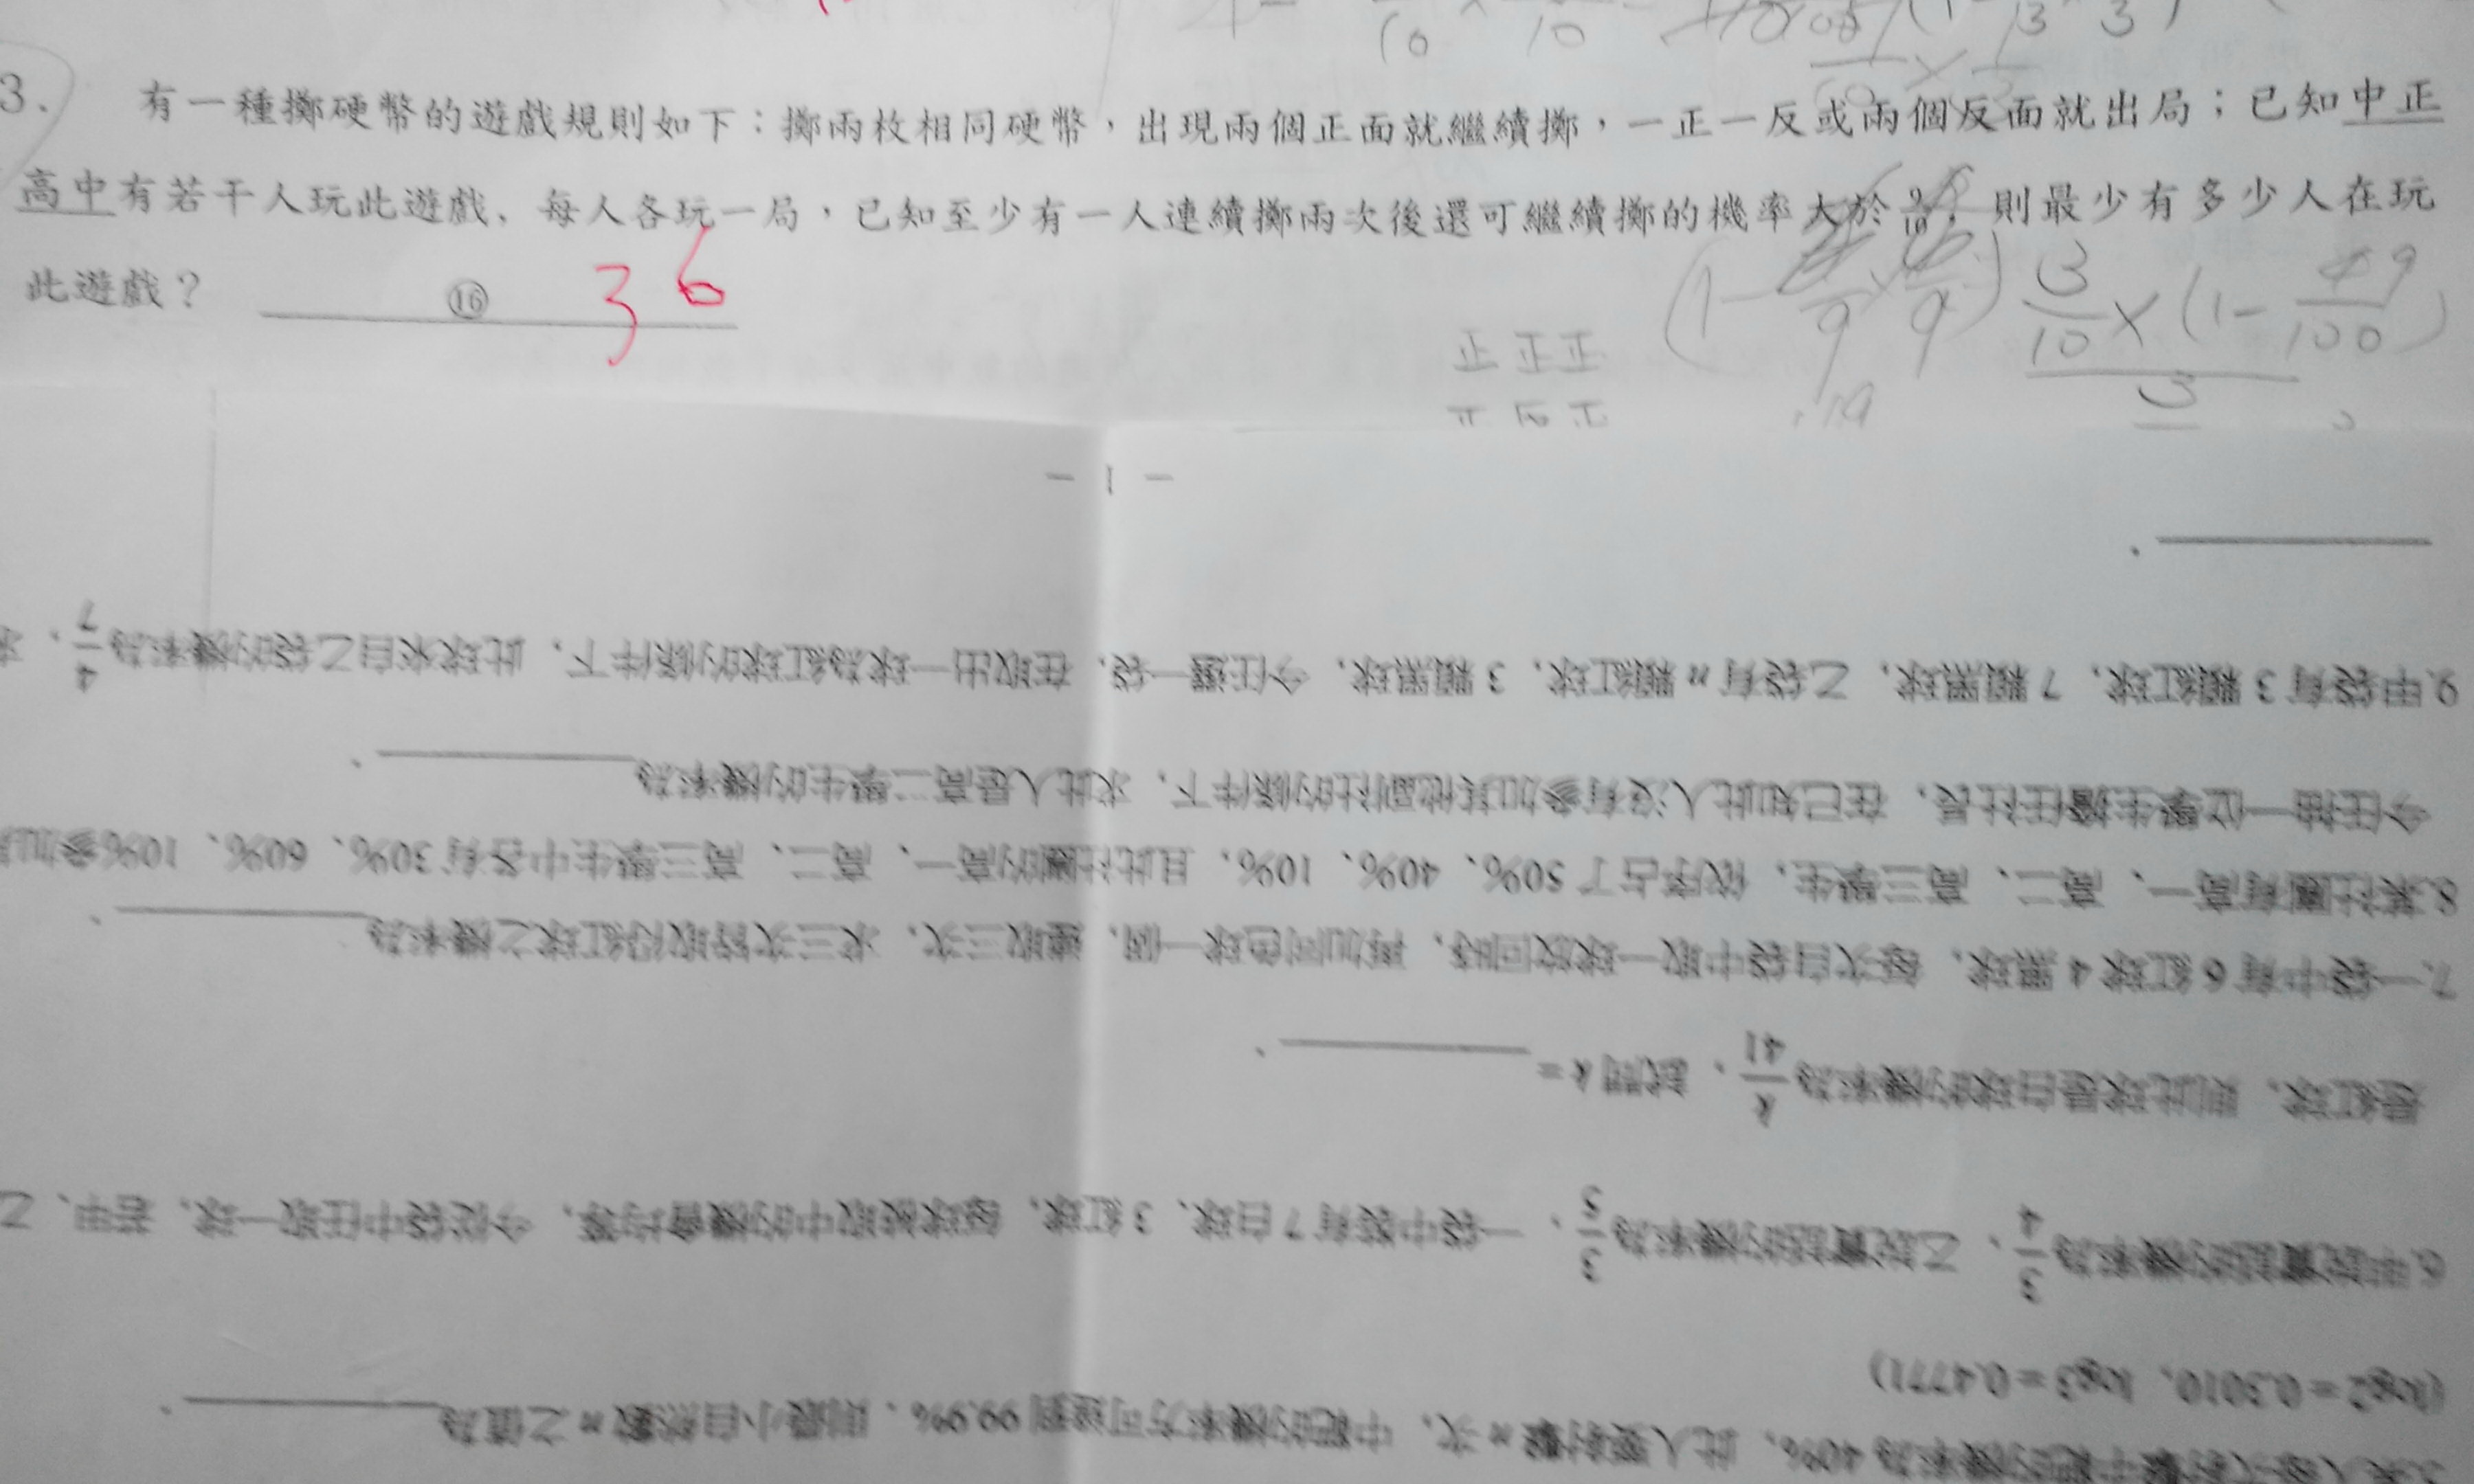 3. 有一種擲硬幣的遊戲規則如下：擲兩枚相同硬幣，出現兩個正面就繼續擲，一正一反或兩個反面就出局；已知中正
高中有若干人玩此遊戲，每人各玩一局，已知至少有一人連續擲兩次後還可繼續擲的機率大於 9/10，則最少有多少人在玩
此遊戲？ ⑯ 36
正 正 正
3/10 × (1 - 49/100)
- 1 -
9.甲袋有 3 顆紅球，7 顆黑球，乙袋有 n 顆紅球，3 顆黑球，今任選一袋，在取出一球為紅球的條件下，此球來自乙袋的機率為 4/7，求
今任抽一位學生擔任社長，在已知此人沒有參加其他副社的條件下，求此人是高二學生的機率為
8.某社團有高一、高二、高三學生，依序占了 50%、40%、10%，且此社團的高一、高二、高三學生中各有 30%、60%、10%參加
7.一袋中有 6 紅球 4 黑球，每次自袋中取一球放回時，再加同色球一個，連取三次，求三次皆取得紅球之機率為
是紅球，則此球是白球的機率為 k/41，試問 k =
6.甲說實話的機率為 3/4，乙說實話的機率為 3/5，一袋中裝有 7 白球，3 紅球，每球被取中的機會均等，今從袋中任取一球，若甲、乙
(log2 = 0.3010，log3 = 0.4771)
中靶的機率為 40%，此人要射擊 n 次，中靶的機率方可達到 99.9%，則最小自然數 n 之值為